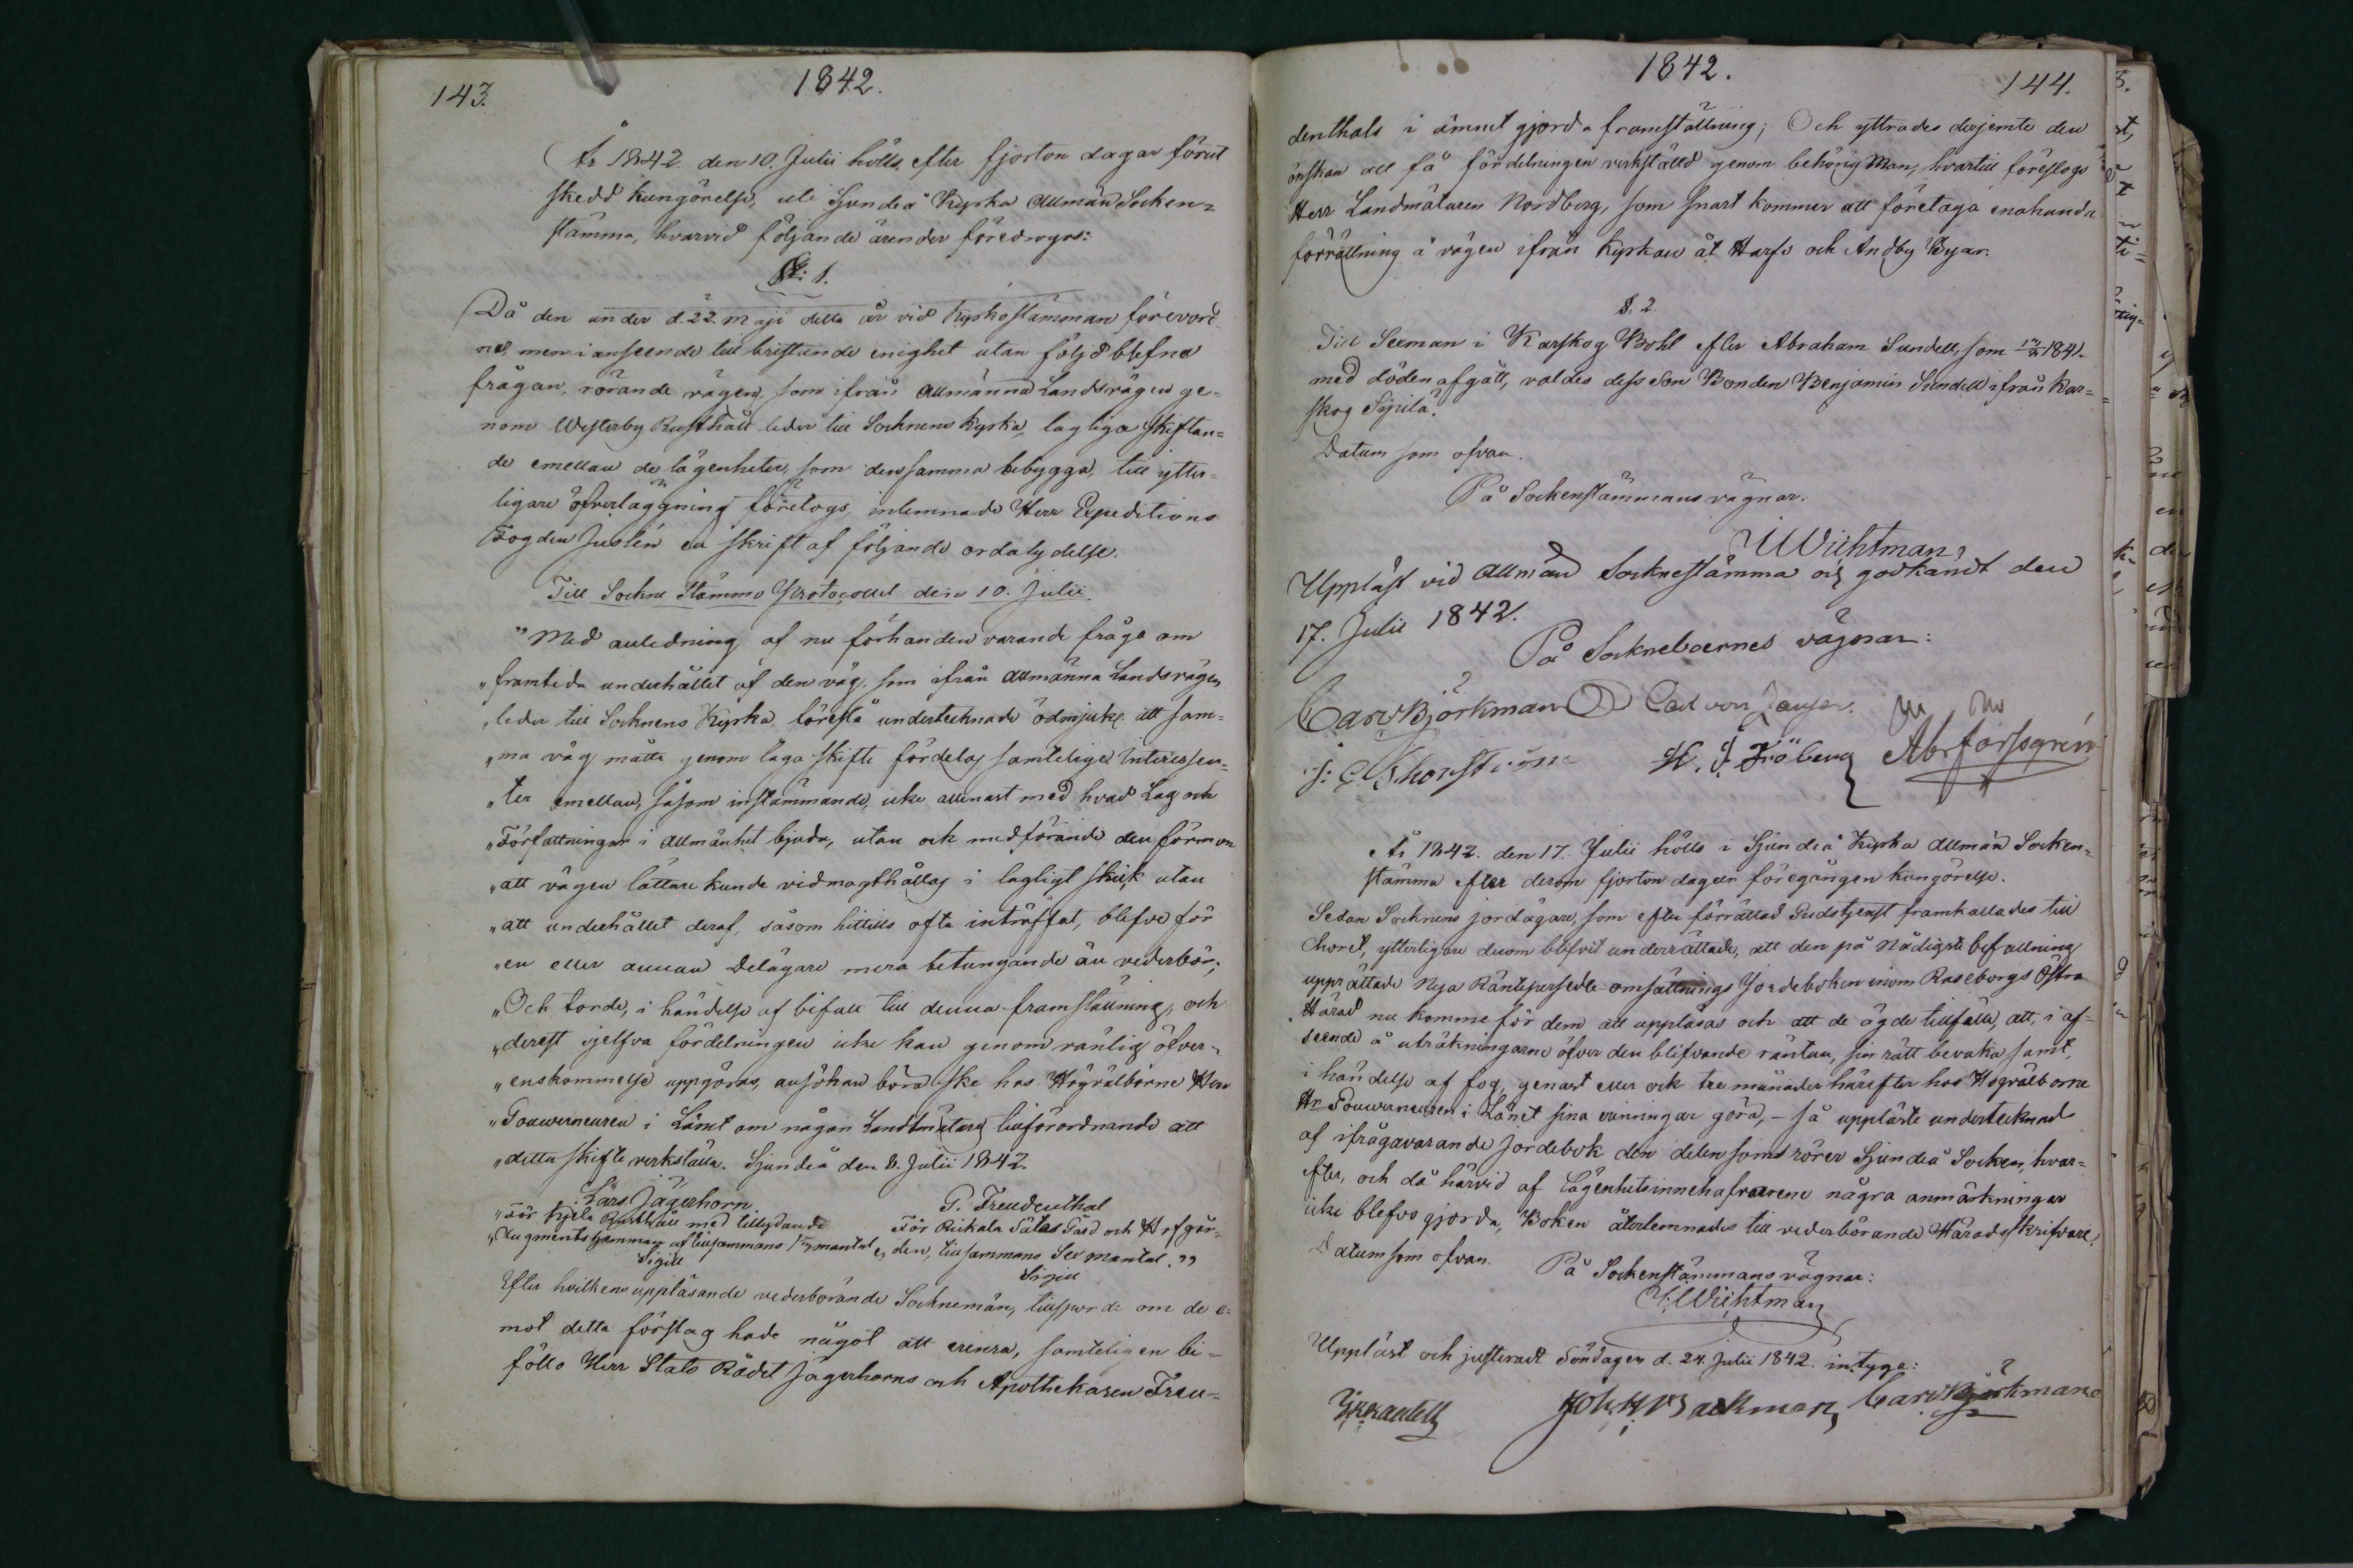 143.
1842.
År 1842. den 10. Julii hölls, efter fjorton dagar förut
skedd kungörelse, uti Sjundeå Kyrka Allmän Socken-
stämma, hvarvid följande ärender föredrogs:
§: 1.
Då den under d. 22. Maji detta år vid Kyrkostämman förevord-
ne, men i anseende till bristande enighet utan följd blefne
frågan, rörande vägen, som ifrån Allmänna Landsvägen ge-
nom Westerby Rusthåll leder till Socknens Kyrka, lagliga skiftan-
de emellan de lägenheter, som densamma bebygga, till ytter-
ligare öfverläggning företogs, inlemnade Herr Expeditions
Fogden Juslén en skrift af följande ordalydelse.
Till Sockne Stämmo Protocollet den 10. Julii.
"Med anledning af nu förhanden varande fråga om
"framtida underhållet af den väg, som ifrån Allmänna Landsvägen
"leder till Socknens Kyrka, föreslå undertecknade ödmjukt att sam-
"ma väg måtte genom laga skifte fördelas samtelige Interessen-
"ter emellan, såsom instämmande, icke allenast med hvad Lag och
"Författningar i Allmänhet bjuda, utan och medförande den förmon
"att vägen lättare kunde vidmagthållas i lagligt skick utan
"att underhållet deraf, såsom hittills ofta inträffat, blefve för
"en eller annan Delägare mera betungande än vederbör;
"Och torde, i händelse af bifall till denna framställning, och
"derest sjelfva fördelningen icke kan genom vänlig öfver-
"enskommelse uppgöras, ansökan böra ske hos Högvälborne Herr
"Gouverneuren i Länet om någon Landtmätares tillförordnande att
"detta skifte verkställa. Sjundeå den 8. Julii 1842.
Lars Jägerhorn G. Freudenthal
"För Kjela Rusthåll med tillydande För Rickala Säteri Gård och Hofgår-
"Augmentshemman af tillsammans mantal, den, tillsammans Sex mantal."
Sigill Sigill
Efter hvilkens uppläsande vederbörande Socknemän, tillsporde om de e-
mot detta förslag hade något att erinra, samteligen bi-
föllo Herr Stats Rådet Jägerhorns och Apothekaren Freu-
1842.
144.
denthals i ämnet gjorda framställning; Och yttrades derjemte den
önskan att få fördelningen verkställd genom behörig Man, hvartill föreslogs
Herr Landmätaren Nordberg, som snart kommer att företaga enahanda
förrättning å vägen ifrån Kyrkan åt Harfs och Andby Byar.
§. 2.
Till Sexman i Karskog Bohl efter Abraham Sundell, som 1841.
med döden afgått, valdes dess Son Bonden Benjamin Sundell ifrån Kar-
skog Sipilä.
Datum som ofvan.
På Sockenstämmans vägnar.
Wichtman
Uppläst vid allmän Socknestämma och godkändt den
17. Julii 1842.
På Sockneboernes vägnar:
Carl Björkman Carl von
H. J. Fröberg Abr Forssgrén
År 1842. den 17. Julii hölls i Sjundeå Kyrka allmän Socken-
stämma efter derom fjorton dagar föregången kungörelse.
Sedan Socknens jordägare, som efter förrättad Gudstjenst framkallades till
Choret, ytterligare derom blifvit underrättade, att den på Nådigste befallning
upprättade Nya Räntepersedle omsättnings Jordeboken inom Raseborgs Östra
Härad nu komme för dem att uppläsas och att de ägde tillfälle, att, i af-
seende å uträkningarne öfver den blifvande räntan, sin rätt bevaka samt,
i händelse af fog, genast eller ock tre månader härefter hos Högvälborne
Hr Gouverneuren i Länet sina erinringar göra, - så uppläste undertecknad
af ifrågavarande jordebok den delen som rörer Sjundeå Socken, hvar-
efter, och då härvid af Lägenhetsinnehafvarene några anmärkningar
icke blefvo gjorda, Boken återlemnades till vederbörande Häradsskrifvare.
Datum som ofvan. På Sockenstämmans vägnar:
Wichtman
Uppläst och justeradt Söndagen d. 24. Julii 1842. intyga:
Joh: H: Backman, Carl Björkman